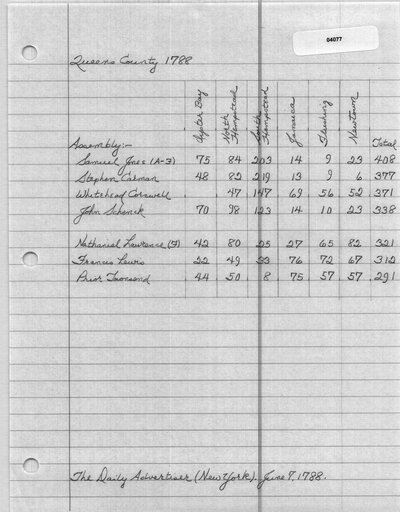 04077
Queens County 1788
Oyster Bay North Hempstead South Hempstead Jamaica Flushing Newtown
Assembly:- Total
Samuel Jones (A-F) 75 84 203 14 9 23 408
Stephen Carman 48 82 219 13 9 6 377
Whitehead Cornwell . 47 147 69 56 52 371
John Schenck 70 98 123 14 10 23 338
Nathaniel Lawrance (F) 42 80 25 27 65 82 321
Francis Lewis 22 49 33 76 72 67 312
Prior Townsend 44 50 8 75 57 57 291
The Daily Advertiser (New York). June 7, 1788.